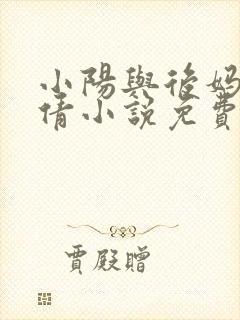 小陽與後媽
倩小說免費
賈殿贈